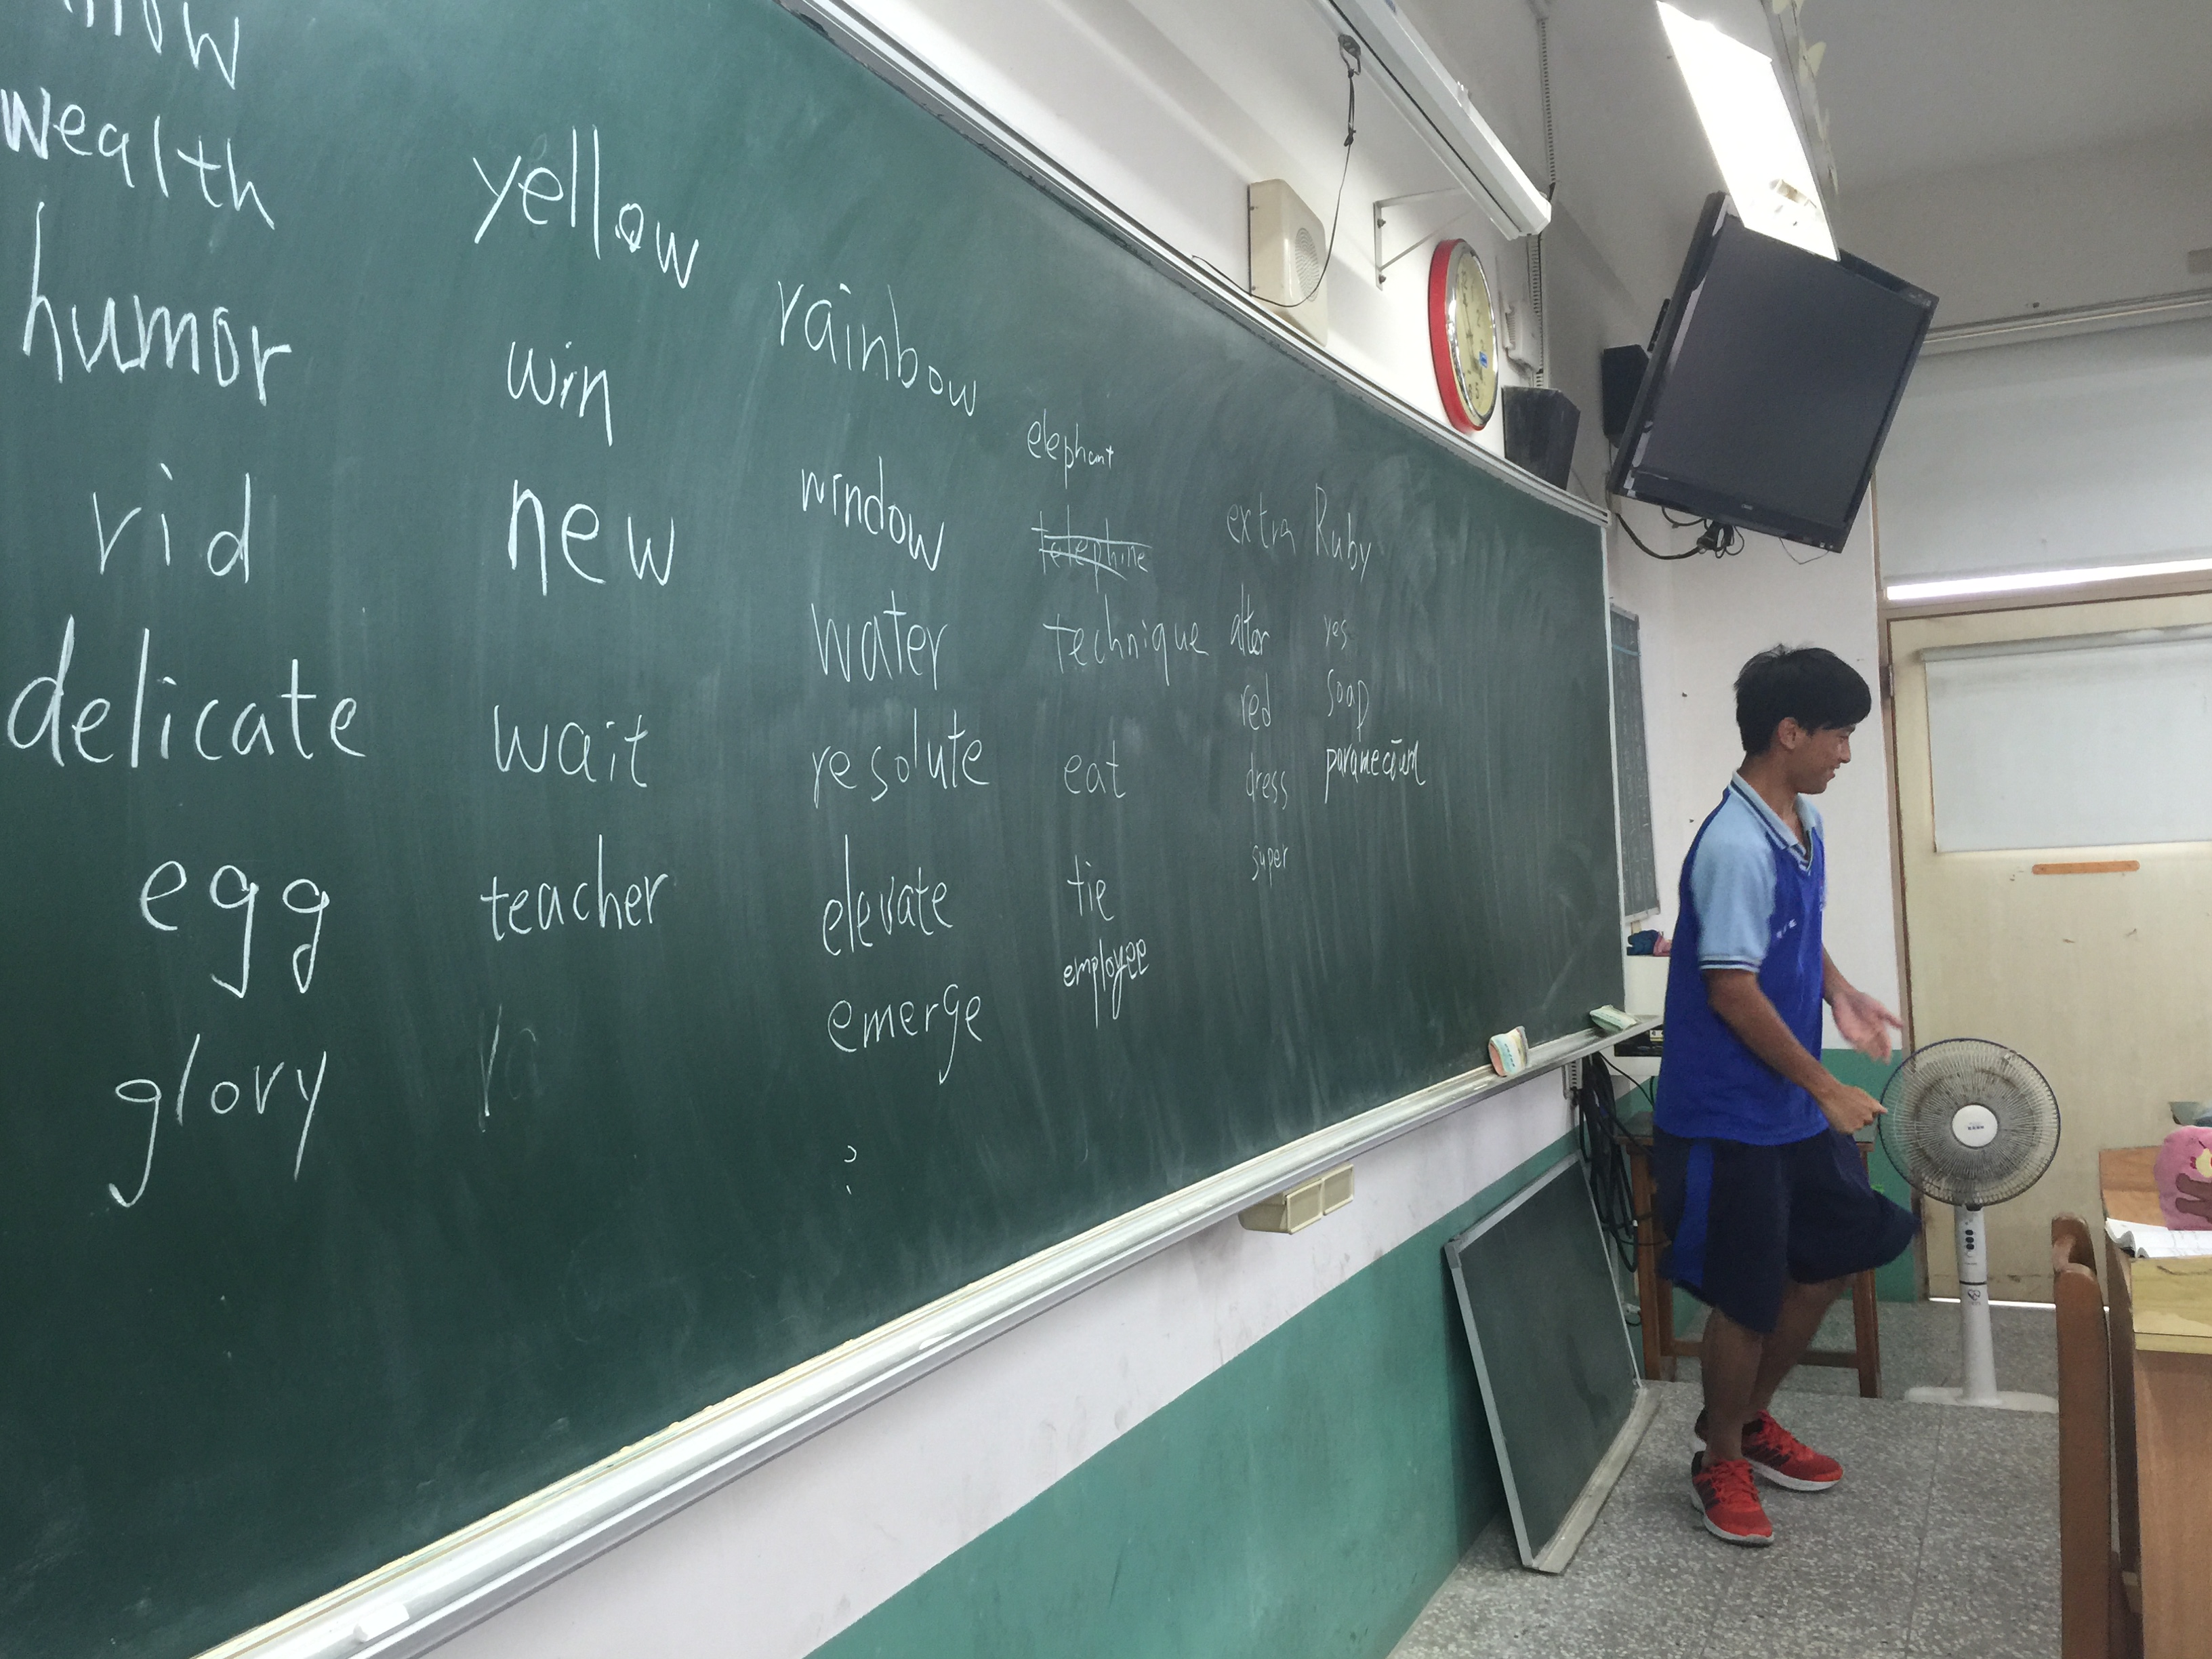 wealth
humor
rid
delicate
egg
glory
yellow
win
new
wait
teacher
rainbow
window
water
resolute
elevate
emerge
?
elephant
telephine
technique
eat
tie
employee
extra
alter
red
dress
super
Ruby
yes
soap
paramecium